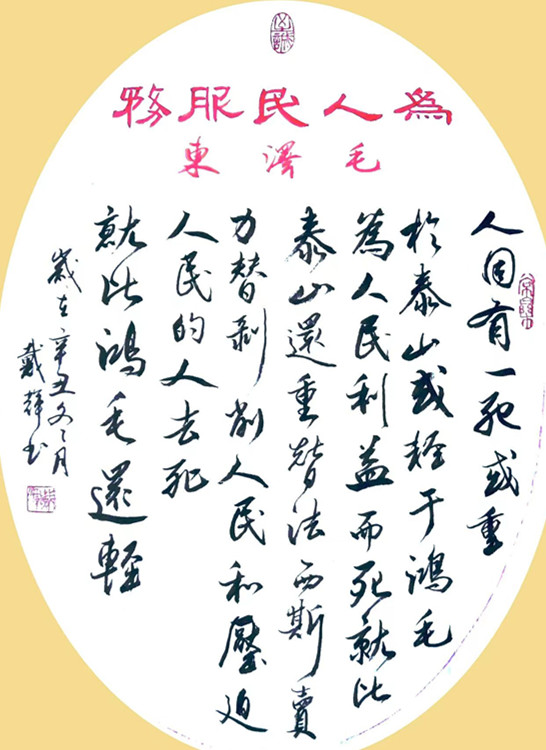 為人民服務
毛澤東
人固有一死或重
於泰山或輕于鴻毛
為人民利益而死就比
泰山還重替法西斯賣
力替剝削人民和壓迫
人民的人去死
就比鴻毛還輕
歲在辛丑冬月
戴輝書